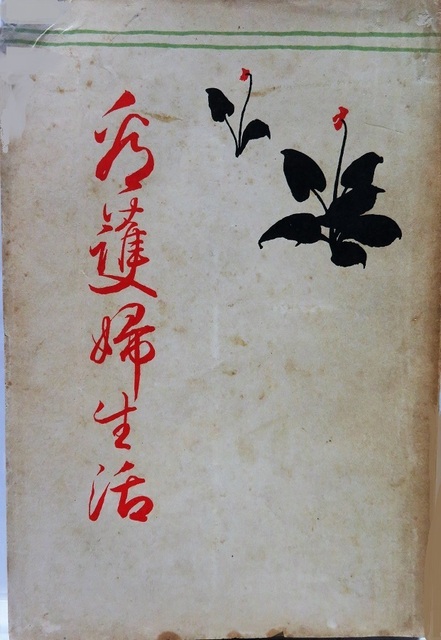 看護婦生活